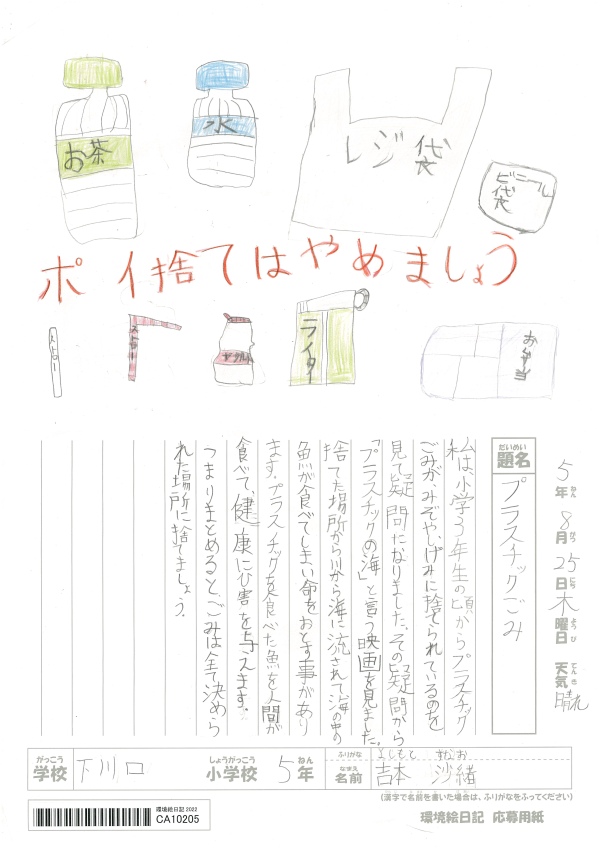 お茶
水
レジ袋
ビニール袋
ポイ捨てはやめましょう
ストロー
ストロー
ヤクルト
ライター
5年8月25日木曜日 天気 晴れ
ねん がつ にち ようび てんき
だいめい
題名 プラスチックごみ
私は、小学3年生の頃からプラスチック
ごみが、みぞや、しげみに捨てられているのを
見て疑問になりました。その疑問から
「プラスチックの海」と言う映画を見ました。
捨てた場所から川から海に流されて海の中の
魚が食べてしまい命をおとす事があり
ます。プラスチックを食べた魚を人間が
食べて、健康にひ害を与えます。
つまりまとめると、ごみは全て決めら
れた場所に捨てましょう。
がっこう しょうがっこう ねん
学校 下川口 小学校 5年
ふりがな よしもと すなお
なまえ
名前 吉本 沙緒
(漢字で名前を書いた場合は、ふりがなをふってください)
環境絵日記 2022
CA10205
環境絵日記 応募用紙